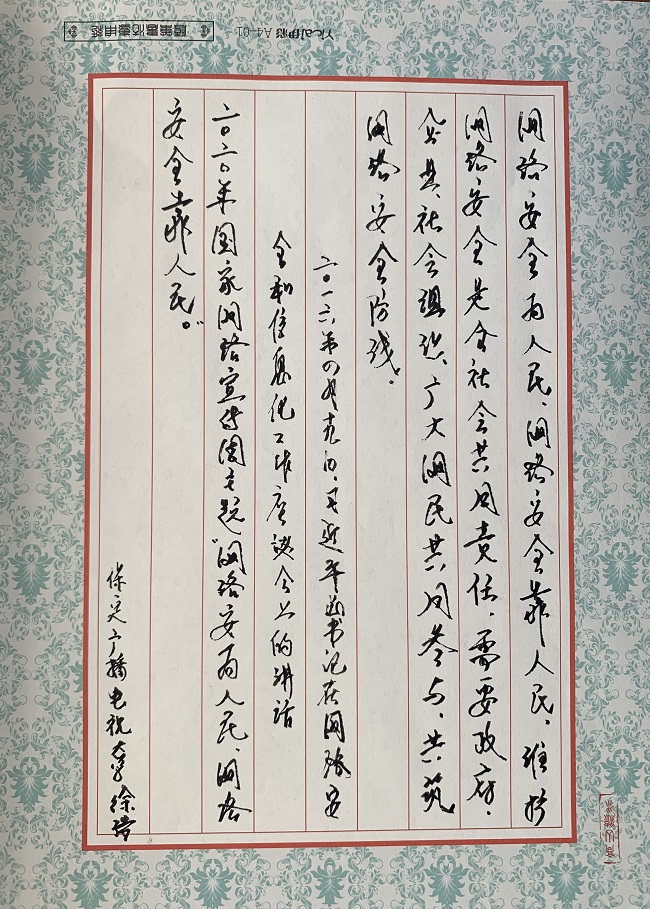 网络安全为人民，网络安全靠人民，维护
网络安全是全社会共同责任，需要政府、
企业、社会组织、广大网民共同参与，共筑
网络安全防线。
二〇一六年四月十九日，习近平总书记在网络安
全和信息化工作座谈会上的讲话
二〇二〇年国家网络宣传周主题“网络安为人民，网络
安全靠人民。”
保定广播电视大学徐
A4-01